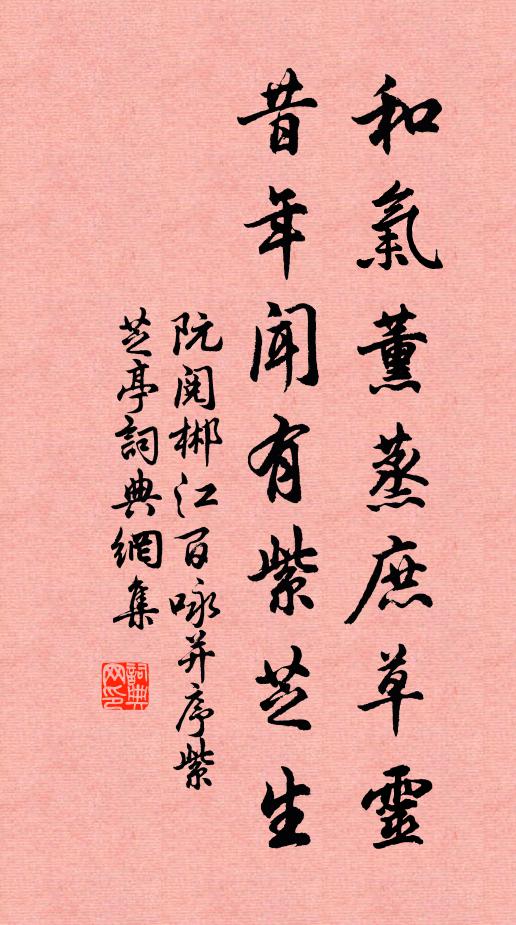 和氣薰蒸庶草靈
昔年聞有紫芝生
阮閱郴江百咏并序紫
芝亭詞典網集
詞典网印